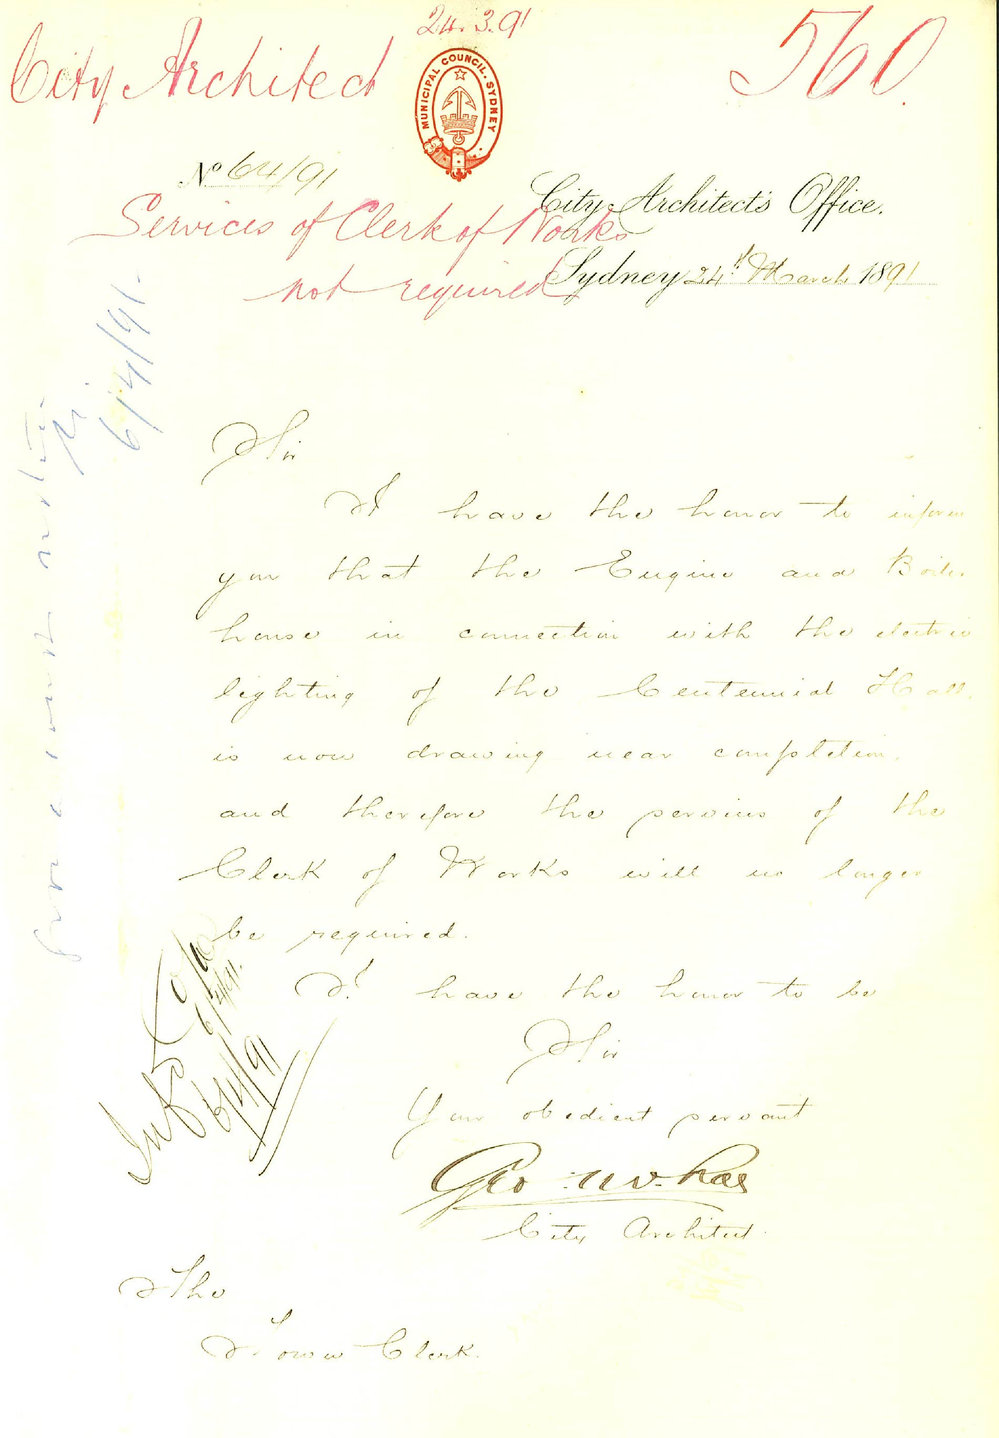 24.3.91
City Architect
560.
MUNICIPAL COUNCIL. SYDNEY
No 64/91
City Architect's Office.
Services of Clerk of Works
not required
Sydney 24th March 1891
6/4/91.
Sir
I have the honor to inform
you that the Engine and Boiler
house in connection with the electric
lighting of the Centennial Hall.
is now drawing near completion.
and therefore the services of the
Clerk of Works will no longer
be required.
I have the honor to be
Sir
Your obedient servant
Geo
City Architect.
The
Town Clerk.
6/4/91
6/4/91